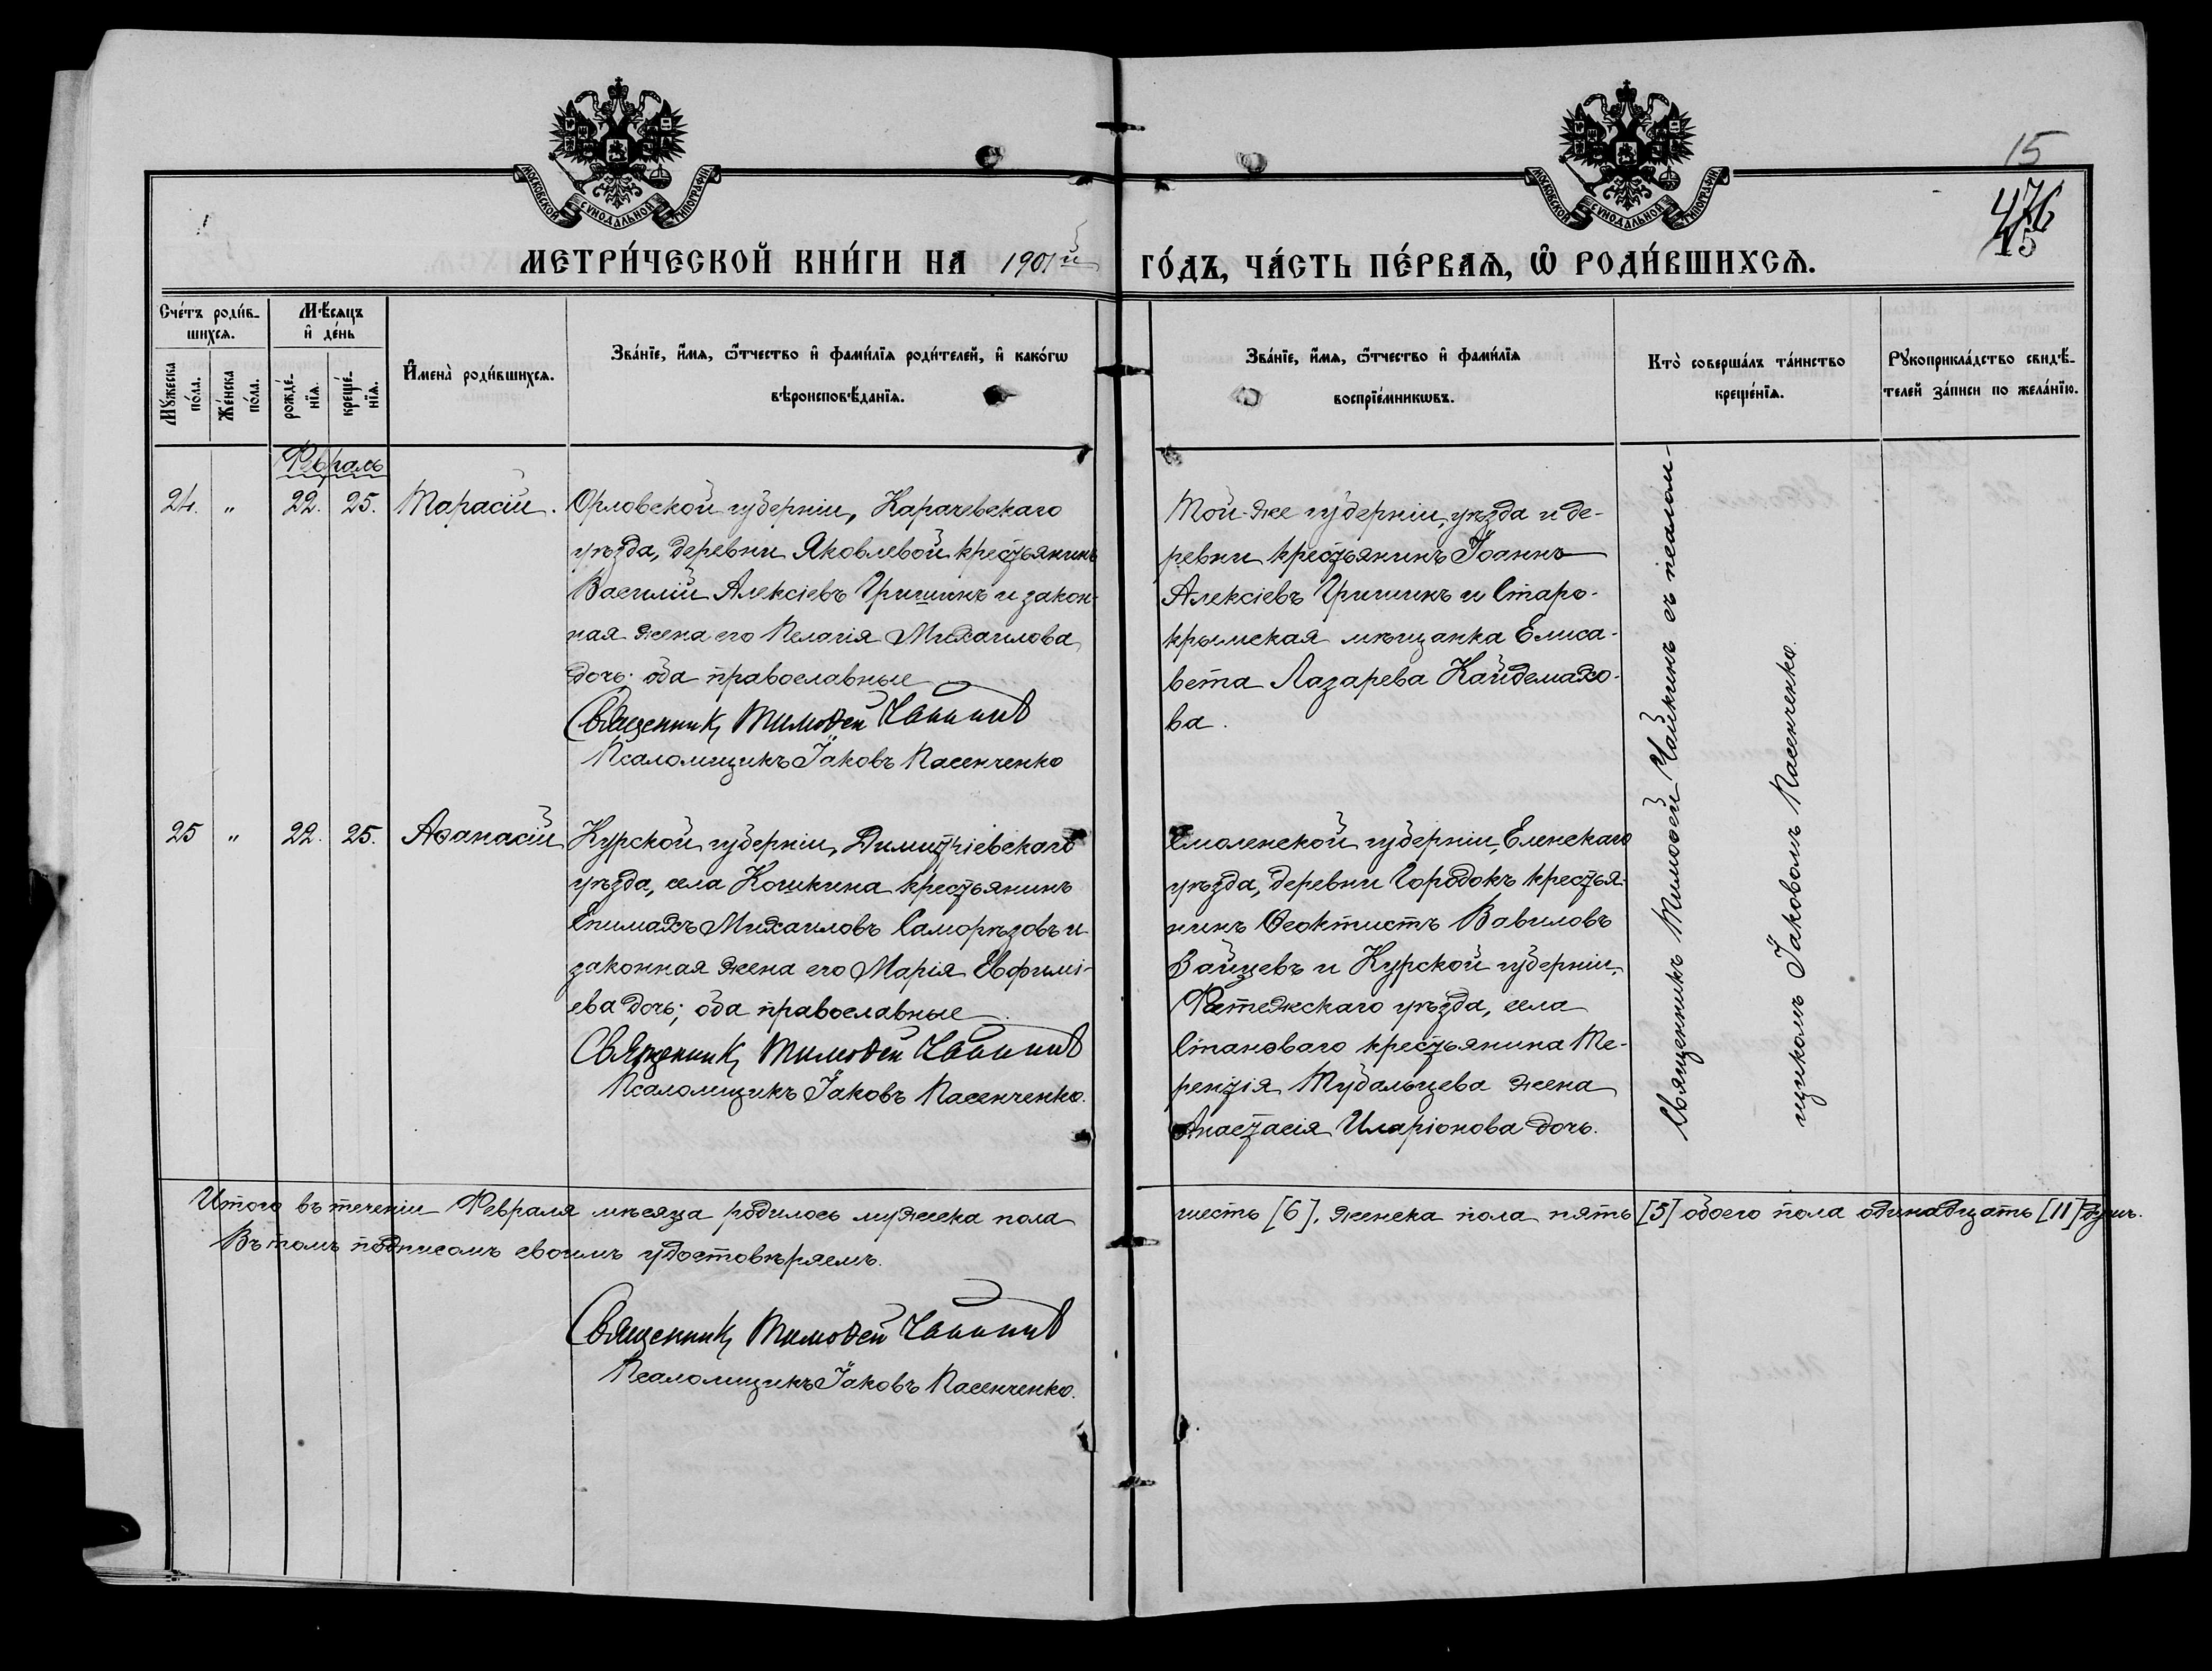 15
476
15
МОСКОВСКОЙ СѴНОДАЛЬНОЙ ТИПОГРАФІИ
МОСКОВСКОЙ СѴНОДАЛЬНОЙ ТИПОГРАФІИ
МЕТРИ́ЧЕСКОЙ КНИ́ГИ НА 1901й ГО́ДЪ, ЧА́СТЬ ПЕ́РВАѦ, Ѡ҆ РОДИ́ВШИХСѦ.
Сче́тъ роди́в-
шихсѧ.
Мѣ́сѧцъ
и҆ де́нь
Мꙋ́жеска
по́ла.
Же́нска
по́ла.
рожде́-
нїѧ.
креще́-
нїѧ.
И҆мена̀ роди́вшихсѧ.
Зва́нїе, и҆́мѧ, ѻ҆́тчество и҆ фами́лїѧ роди́телей, и҆ како́гѡ
вѣроисповѣ́данїѧ.
Зва́нїе, и҆́мѧ, ѻ҆́тчество и҆ фами́лїѧ
воспрїе́мникѡвъ.
Кто̀ соверша́лъ та́инство
креще́нїѧ.
Рꙋкоприкла́дство свидѣ́-
телей за́писи по жела́нїю.
Февраль
24. " 22. 25. Тарасій.
Орловской губерніи, Карачевскаго
уѣзда, деревни Яковлевой крестьянинъ
Василій Алексіевъ Гришинъ и закон-
ная жена его Пелагія Михаилова
дочь; оба православные
Священникъ Тимоѳей Чайкинъ
Псаломщикъ Іаковъ Пасенченко
Той-же губерніи, уѣзда и де-
ревни крестьянинъ Іоаннъ
Алексіевъ Гришинъ и Старо-
крымская мѣщанка Елиса-
вета Лазарева Кайдемахо-
ва.
25 " 22. 25. Аѳанасій
Курской губерніи, Димитріевскаго
уѣзда, села Кошкина крестьянинъ
Епимахъ Михаиловъ Саморѣзовъ и
законная жена его Марія Евфимі-
ева дочь; оба православные.
Священникъ Тимоѳей Чайкинъ
Псаломщикъ Іаковъ Пасенченко.
Смоленской губерніи, Еленскаго
уѣзда, деревни Городокъ крестья-
нинъ Ѳеоктистъ Вавиловъ
Зайцевъ и Курской губерніи,
Фатежскаго уѣзда, села
Становаго крестьянина Те-
рентія Тубальцева жена
Анастасія Иларіонова дочь.
Священникъ Тимоѳей Чайкинъ съ псалом-
щикомъ Іаковомъ Пасенченко.
Итого въ теченіи Февраля мѣсяца родилось мужеска пола шесть [6], женска пола пять [5] обоего пола одинадцать [11] душъ.
Въ томъ подписомъ своимъ удостовѣряемъ.
Священникъ Тимоѳей Чайкинъ
Псаломщикъ Іаковъ Пасенченко.